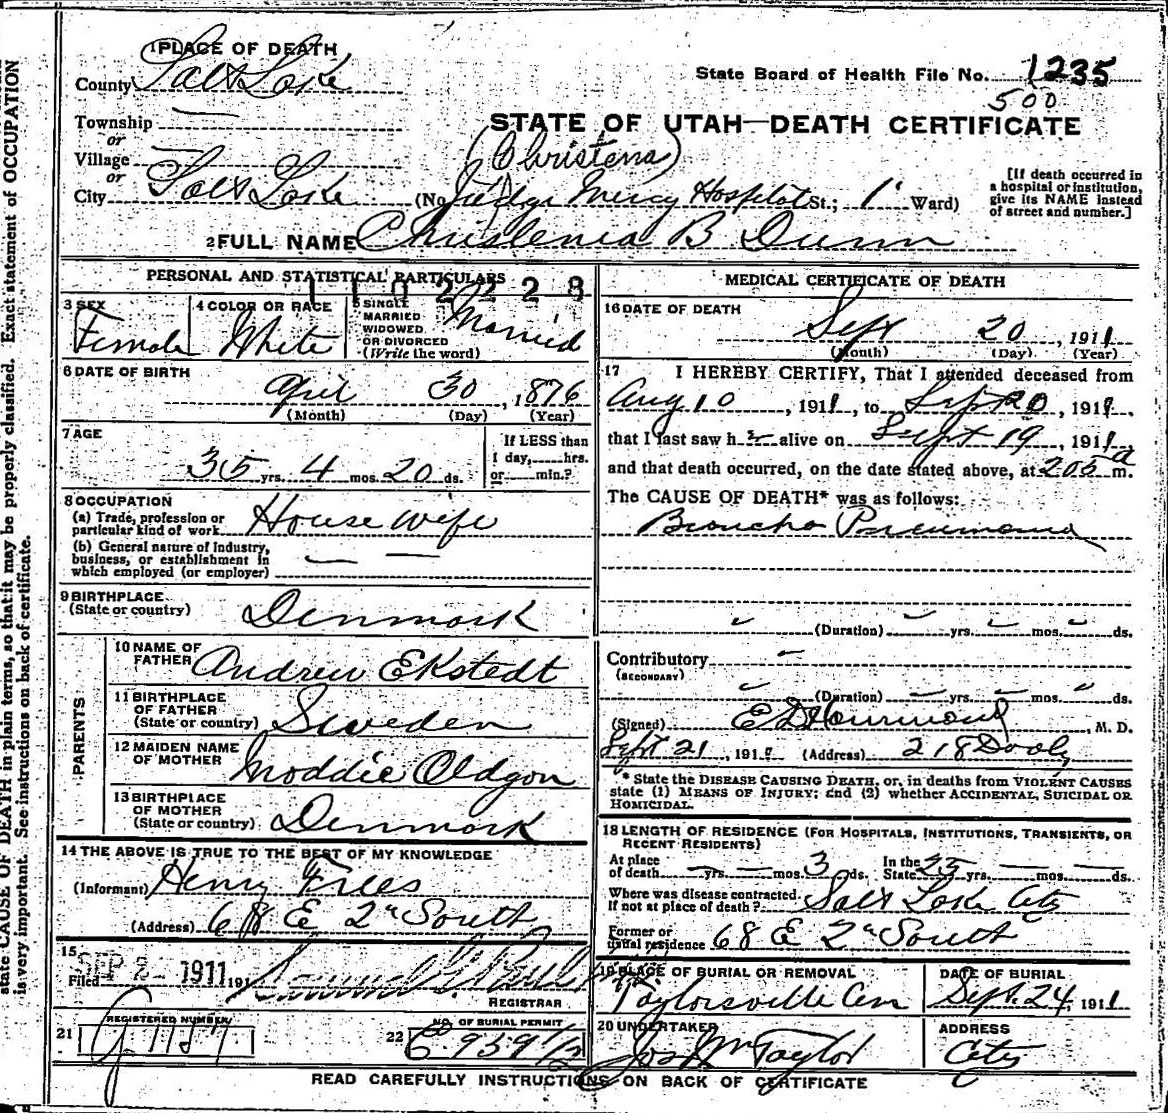 state CAUSE OF DEATH in plain terms, so that it may be properly classified. Exact statement of OCCUPATION
is very important. See instructions on back of certificate.
1 PLACE OF DEATH
County Salt Lake
State Board of Health File No. 1235
500
Township
or
Village
or
City Salt Lake
STATE OF UTAH—DEATH CERTIFICATE
(Christena)
(No. Judge Mercy Hospital St.; 1 Ward)
[If death occurred in
a hospital or institution,
give its NAME instead
of street and number.]
2 FULL NAME Christenia B Dunn
PERSONAL AND STATISTICAL PARTICULARS
1102228
3 SEX Female
4 COLOR OR RACE White
5 SINGLE
MARRIED
WIDOWED
OR DIVORCED
(Write the word) Married
6 DATE OF BIRTH
April 30, 1876
(Month) (Day) (Year)
7 AGE
35 yrs. 4 mos. 20 ds.
If LESS than
1 day, hrs.
or min.?
8 OCCUPATION
(a) Trade, profession or
particular kind of work House wife
(b) General nature of Industry,
business, or establishment in
which employed (or employer)
9 BIRTHPLACE
(State or country) Denmark
PARENTS
10 NAME OF
FATHER Andrew Ekstedt
11 BIRTHPLACE
OF FATHER
(State or country) Sweden
12 MAIDEN NAME
OF MOTHER Moddie Oldgon
13 BIRTHPLACE
OF MOTHER
(State or country) Denmark
14 THE ABOVE IS TRUE TO THE BEST OF MY KNOWLEDGE
(Informant) Henry Frees
(Address) 68 E 2nd South
15
Filed SEP 2 1911 191
REGISTRAR
21 REGISTERED NUMBER
G 1157
22 NO. OF BURIAL PERMIT
C 959 1/2
MEDICAL CERTIFICATE OF DEATH
16 DATE OF DEATH
Sept 20, 1911
(Month) (Day) (Year)
17 I HEREBY CERTIFY, That I attended deceased from
Aug 10, 1911, to Sept 20, 1911,
that I last saw her alive on Sept 19, 1911,
and that death occurred, on the date stated above, at 205 a m.
The CAUSE OF DEATH* was as follows:
Broncho Pneumonia
(Duration) yrs. mos. ds.
Contributory
(SECONDARY)
(Duration) yrs. mos. ds.
(Signed) E D Hammond, M. D.
Sept 21, 191 (Address) 218 Dooly
* State the DISEASE CAUSING DEATH, or, in deaths from VIOLENT CAUSES
state (1) MEANS OF INJURY; and (2) whether ACCIDENTAL, SUICIDAL OR
HOMICIDAL.
18 LENGTH OF RESIDENCE (FOR HOSPITALS, INSTITUTIONS, TRANSIENTS, OR
RECENT RESIDENTS)
At place
of death yrs. mos. 3 ds. In the
State 25 yrs. mos. ds.
Where was disease contracted
If not at place of death? Salt Lake City
Former or
usual residence 68 E 2nd South
19 PLACE OF BURIAL OR REMOVAL
Taylorsville Cem
DATE OF BURIAL
Sept. 24, 1911
20 UNDERTAKER
Jos Wm Taylor
ADDRESS
City
READ CAREFULLY INSTRUCTIONS ON BACK OF CERTIFICATE